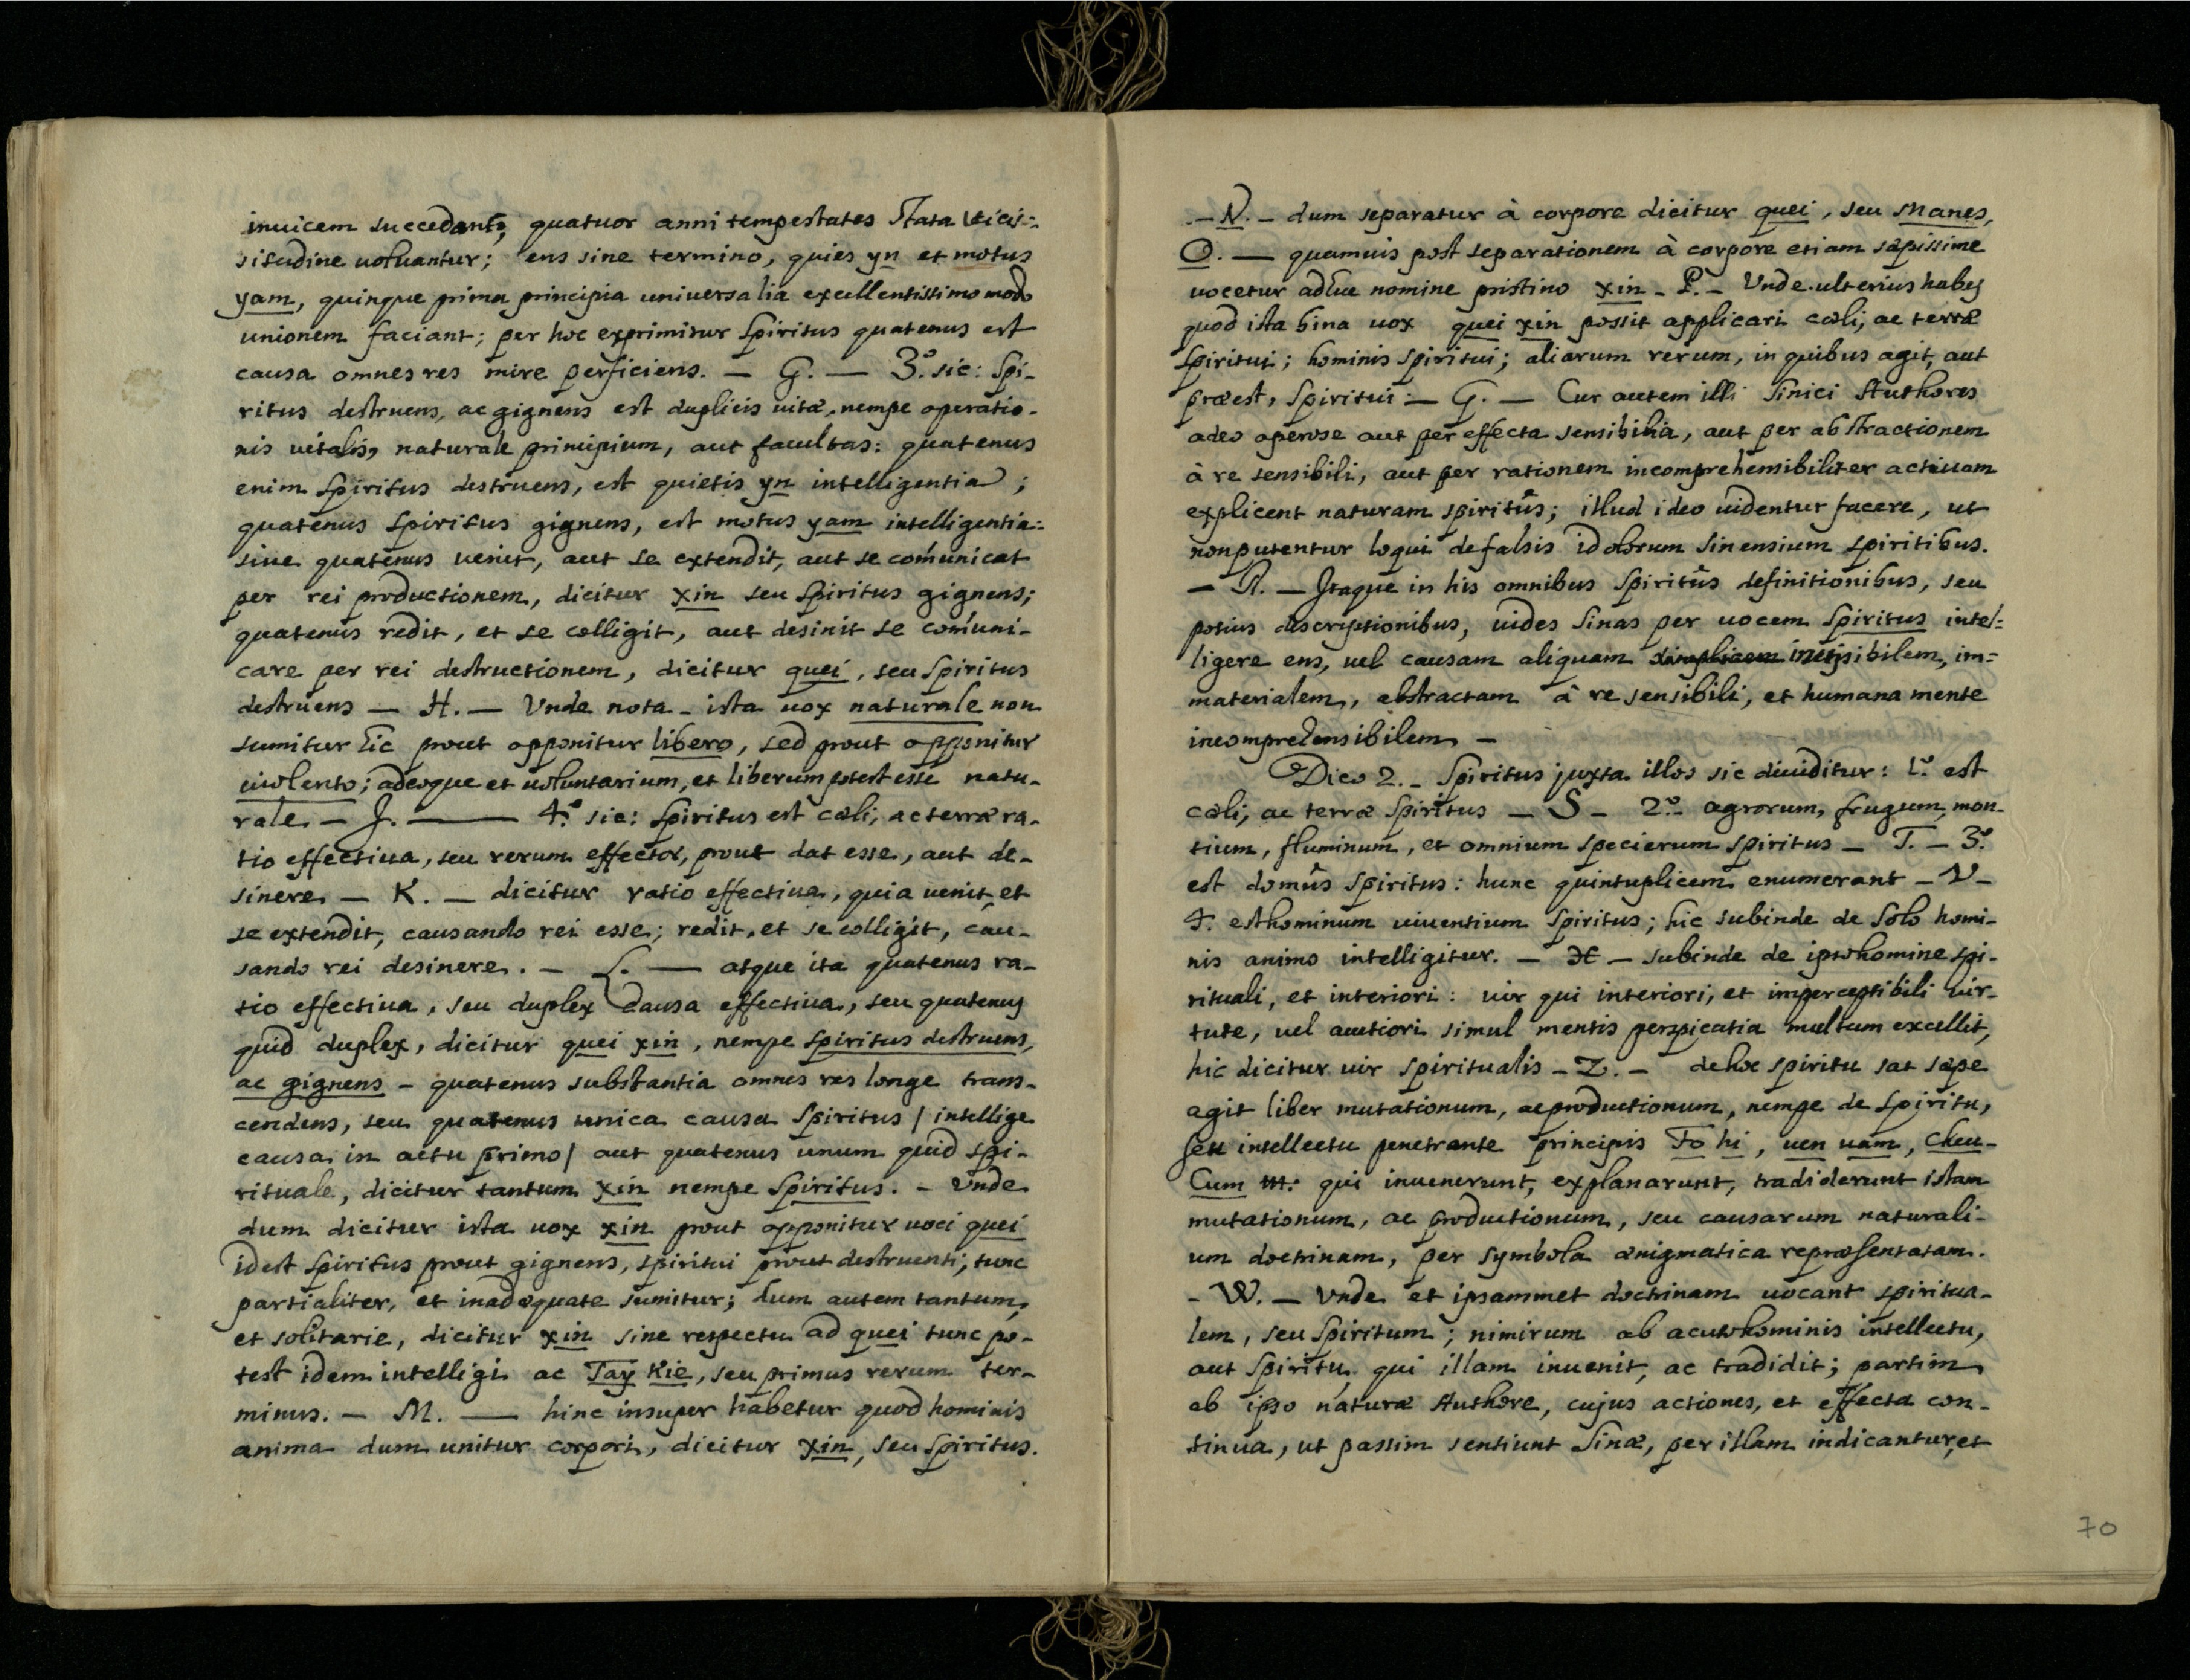 invicem succedant, quatuor anni tempestates stata vicis=
situdine voluantur; ens sine termino, quies yn et motus
yam, quinque prima principia universalia excellentissimo modo
unionem faciant; per hoc exprimitur Spiritus quatenus est
causa omnes res mire perficiens. — G. — 3.º sic: Spi-
ritus destruens, ac gignens est duplicis vitæ, nempe operatio-
nis vitalis, naturale principium, aut facultas: quatenus
enim Spiritus destruens, est quietis yn intelligentia;
quatenus Spiritus gignens, est motus yam intelligentia:
sive quatenus venit, aut se extendit, aut se comúnicat
per rei productionem, dicitur xin seu Spiritus gignens;
quatenus redit, et se colligit, aut desinit se comúni-
care per rei destructionem, dicitur quei, seu Spiritus
destruens — H. — Vnde nota - ista vox naturale non
sumitur hic prout opponitur libero, sed prout opponitur
violento; adeoque et voluntarium, et liberum potest esse natu-
rale. — J. — 4.º sic: Spiritus est cæli, ac terræ ra-
tio effectiua, seu rerum effector, prout dat esse, aut de-
sinere — K. — dicitur ratio effectiua, quia venit, et
se extendit, causando rei esse; redit, et se colligit, cau-
sando rei desinere. — L. — atque ita quatenus ra-
tio effectiua, seu duplex causa effectiua, seu quatenus
quid duplex, dicitur quei xin, nempe spiritus destruens,
ac gignens - quatenus substantia omnes res longe trans-
cendens, seu quatenus unica causa Spiritus / intellige
causa in actu primo / aut quatenus unum quid spi-
rituale, dicitur tantum xin nempe Spiritus. - Vnde
dum dicitur ista vox xin prout opponitur voci quei
id est Spiritus prout gignens, spiritui prout destruenti, tunc
partialiter, et inadequate sumitur; dum autem tantum,
et solitarie, dicitur xin sine respectu ad quei tunc po-
test idem intelligi ac Tay Kie, seu primus rerum ter-
minus. — M. — hinc insuper habetur quod hominis
anima dum unitur corpori, dicitur xin, seu Spiritus.
— N. — dum separatur à corpore dicitur quei, seu Manes,
O. — quamuis post separationem à corpore etiam sæpissime
vocetur adhuc nomine pristino xin — P. — Vnde ulterius habes
quod ista bina vox quei xin possit applicari cæli, ac terræ
Spiritui; hominis spiritui; aliarum rerum, in quibus agit, aut
præest, Spiritui — G. — Cur autem illi Sinici Authores
adeo operose aut per effecta sensibilia, aut per abstractionem
à re sensibili, aut per rationem incomprehensibiliter actiuam
explicent naturam spiritûs; illud ideo videntur facere, ut
non putentur loqui de falsis idolorum Sinensium spiritibus.
— R. — Itaque in his omnibus Spiritûs definitionibus, seu
potius descriptionibus, vides Sinas per vocem Spiritus intel=
ligere ens, vel causam aliquam simplicem invisibilem, im=
materialem, abstractam à re sensibili, et humana mente
incomprehensibilem —
Dico 2. — Spiritus juxta illos sic diuiditur: 1.º est
cæli, ac terræ Spiritus — S — 2.º agrorum, frugum, mon-
tium, fluminum, et omnium specierum spiritus — T. — 3.º
est domûs Spiritus: hunc quintuplicem enumerant — V —
4.º est hominum viventium Spiritus; hic subinde de solo homi-
nis animo intelligitur. — X — subinde de ipso homine spi-
rituali, et interiori: vir qui interiori, et imperceptibili vir-
tute, vel acutiori simul mentis perspicatia multum excellit,
hic dicitur vir spiritualis — Z. — de hoc spiritu sat sæpe
agit liber mutationum, ac productionum, nempe de Spiritu,
seu intellectu penetrante principis Fo hi, uen uam, Cheu-
Cum qui inuenerunt, explanarunt, tradiderunt istam
mutationum, ac productionum, seu causarum naturali-
um doctrinam, per symbola ænigmatica repræsentatam.
- W. — Vnde et ipsammet doctrinam vocant spiritua-
lem, seu Spiritum; nimirum ab acuto hominis intellectu,
aut Spiritu, qui illam inuenit, ac tradidit; partim
ab ipso naturæ Authore, cujus actiones, et effecta con-
tinua, ut passim sentiunt Sinæ, per illam indicantur, et
70